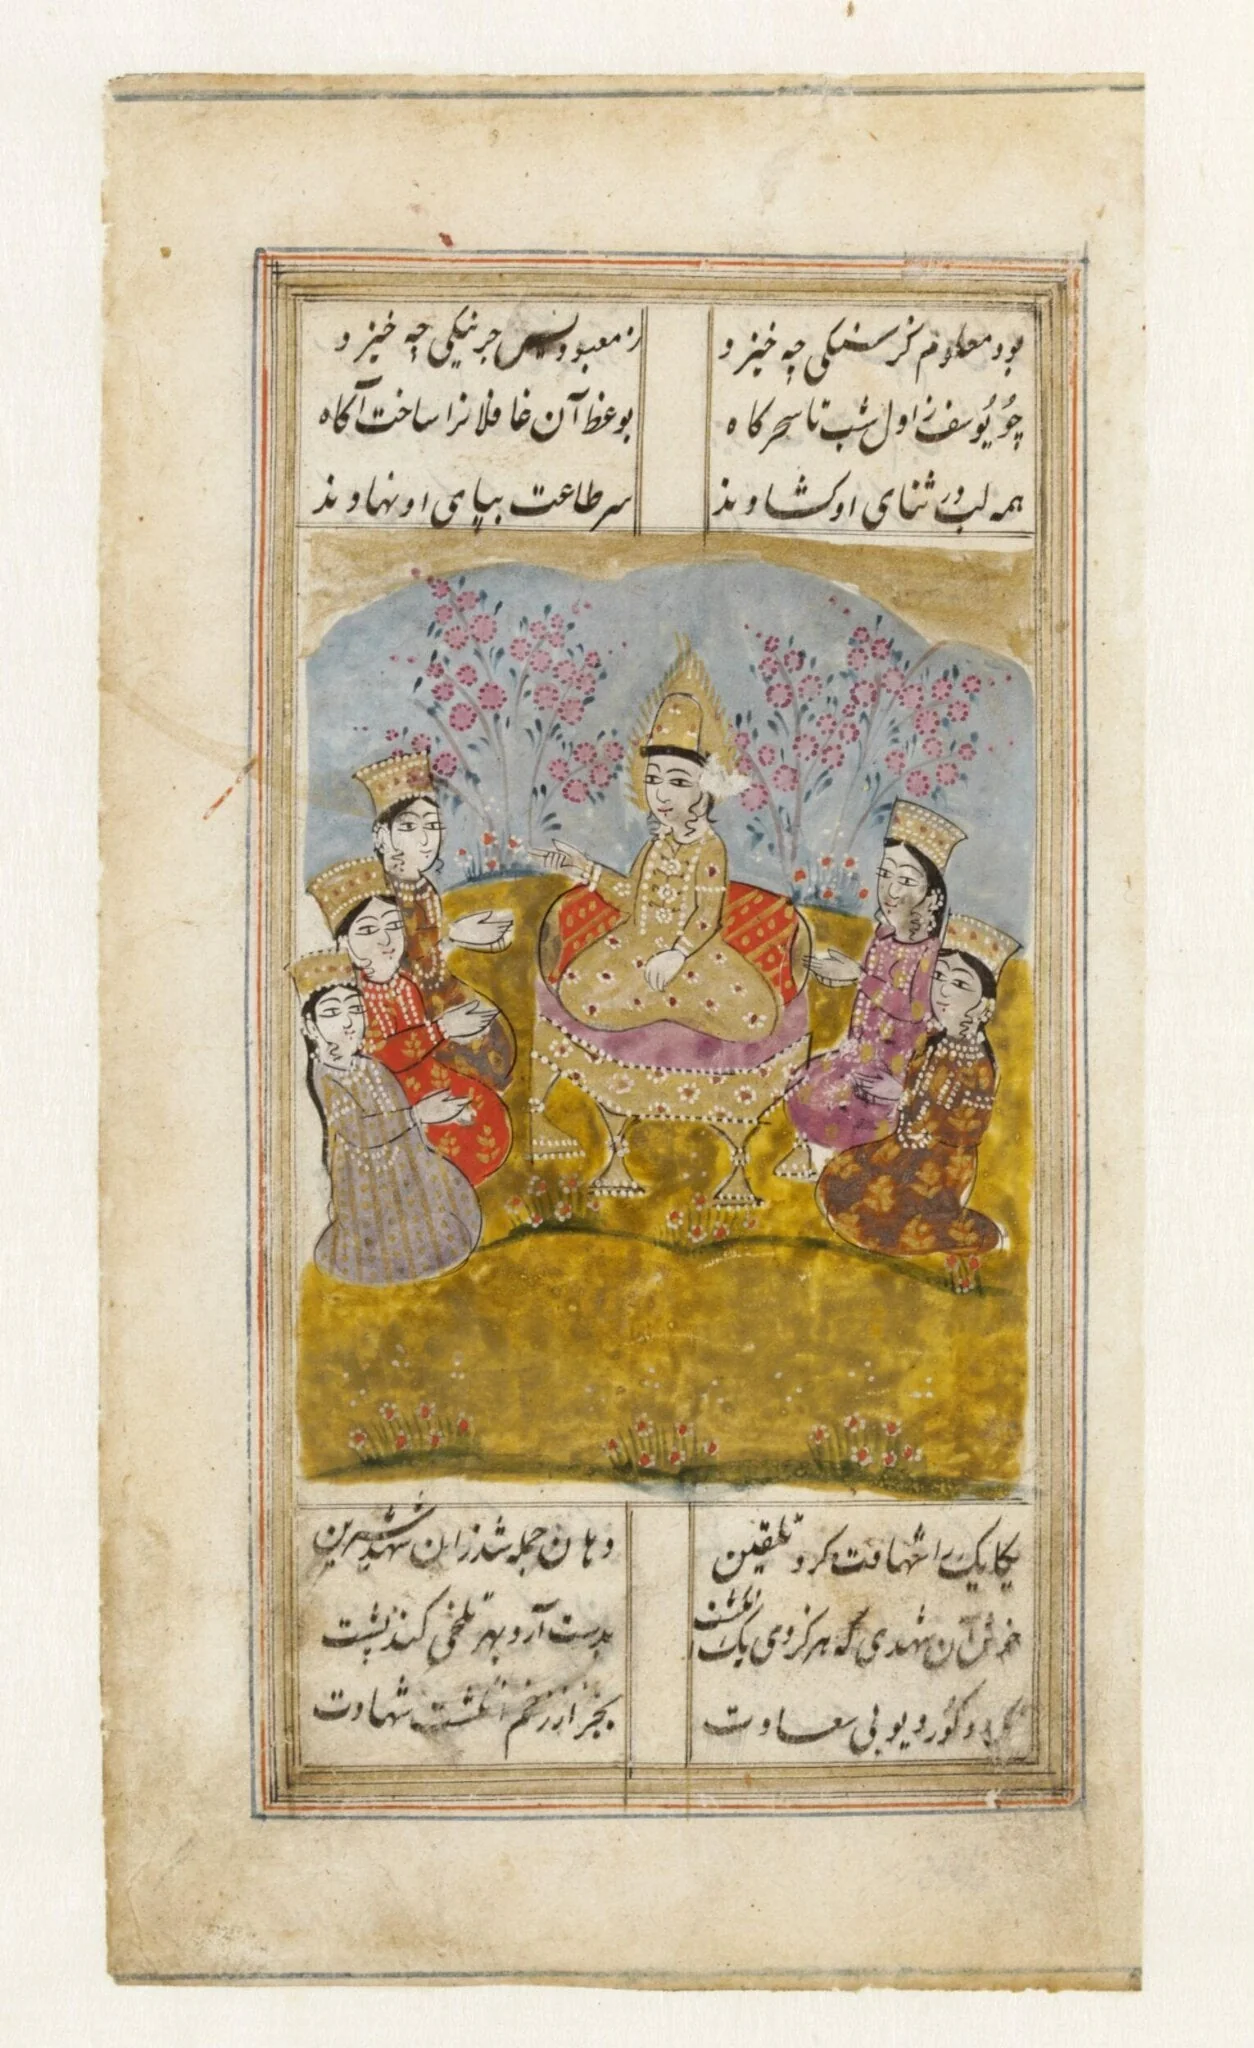 بود معلوم کز سنکی چه خیزد ز معبودیس جز ننکی چه خیزد
چُو یُوسف ز اول شب تا سحرکاه بوعظ آن غافلانرا ساخت آکاه
همه لب در ثنای او کشادند سر طاعت بپای او نهادند
یکایک را شهادت کرد تلقین دهان جمله شد زان شهد شیرین
خوش آن شهدی که هر کز وی یک انکشت بدست آرد بهر تلخی کند پشت
کور دیو بی سعادت بجز از زخم انکشت شهادت